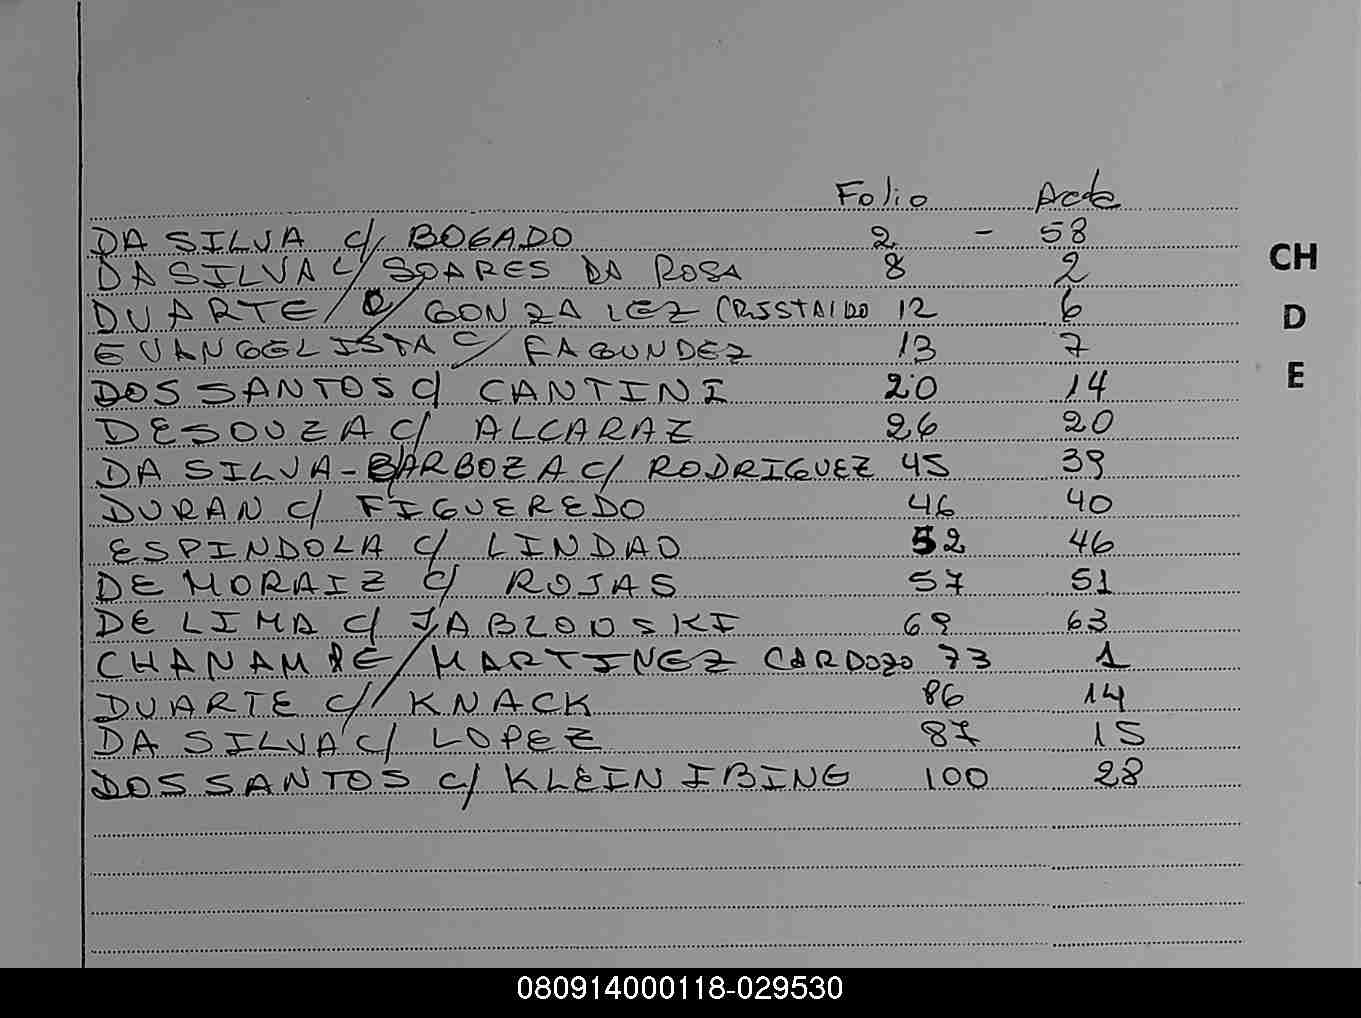 Folio Acta
DA SILVA c/ BOGADO 2 - 58
DA SILVA c/ SOARES DA ROSA 8 2
DUARTE / GONZALEZ CRISTALDO 12 6
EVANGELISTA c/ FAGUNDEZ 13 7
DOS SANTOS c/ CANTINI 20 14
DE SOUZA c/ ALCARAZ 26 20
DA SILVA-BARBOZA c/ RODRIGUEZ 45 39
DURAN c/ FIGUEREDO 46 40
ESPINDOLA c/ LINDAO 52 46
DE MORAIZ c/ ROJAS 57 51
DE LIMA c/ JABLONSKI 69 63
CHANAMPE / MARTINEZ CARDOZO 73 1
DUARTE c/ KNACK 86 14
DA SILVA c/ LOPEZ 87 15
DOS SANTOS c/ KLEIN IBING 100 28
CH
D
E
080914000118-029530